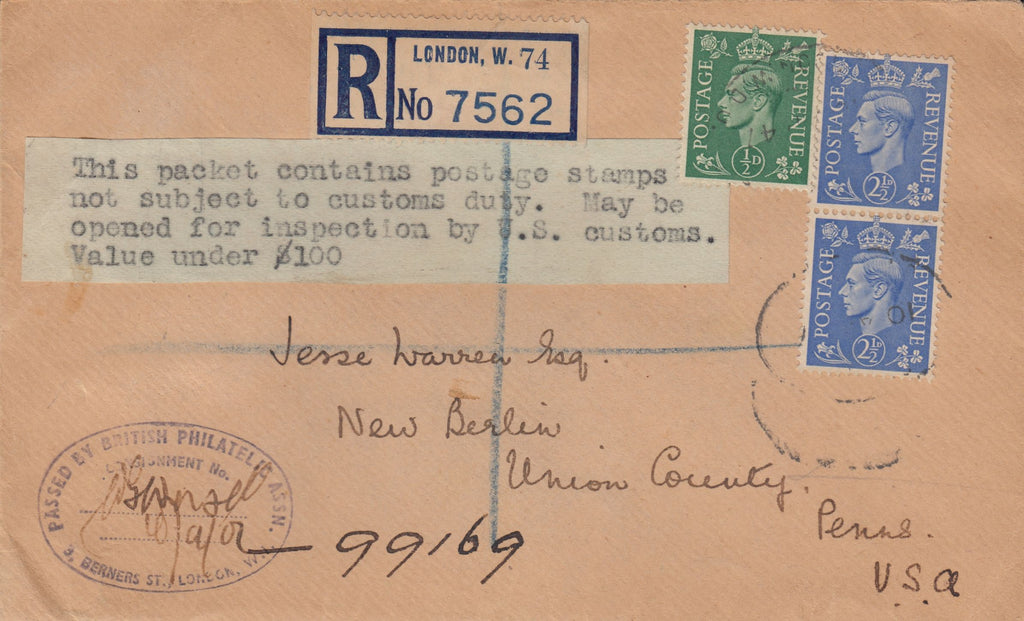 R
LONDON, W. 74
No 7562
POSTAGE REVENUE
½D
POSTAGE REVENUE
2½D
POSTAGE REVENUE
2½D
This packet contains postage stamps
not subject to customs duty. May be
opened for inspection by U.S. customs.
Value under $100
Jesse Warren Esq.
New Berlin
Union County.
Penns.
U.S.A
PASSED BY BRITISH PHILATELIC ASSN.
CONSIGNMENT No.
3, BERNERS ST., LONDON, W.
99169